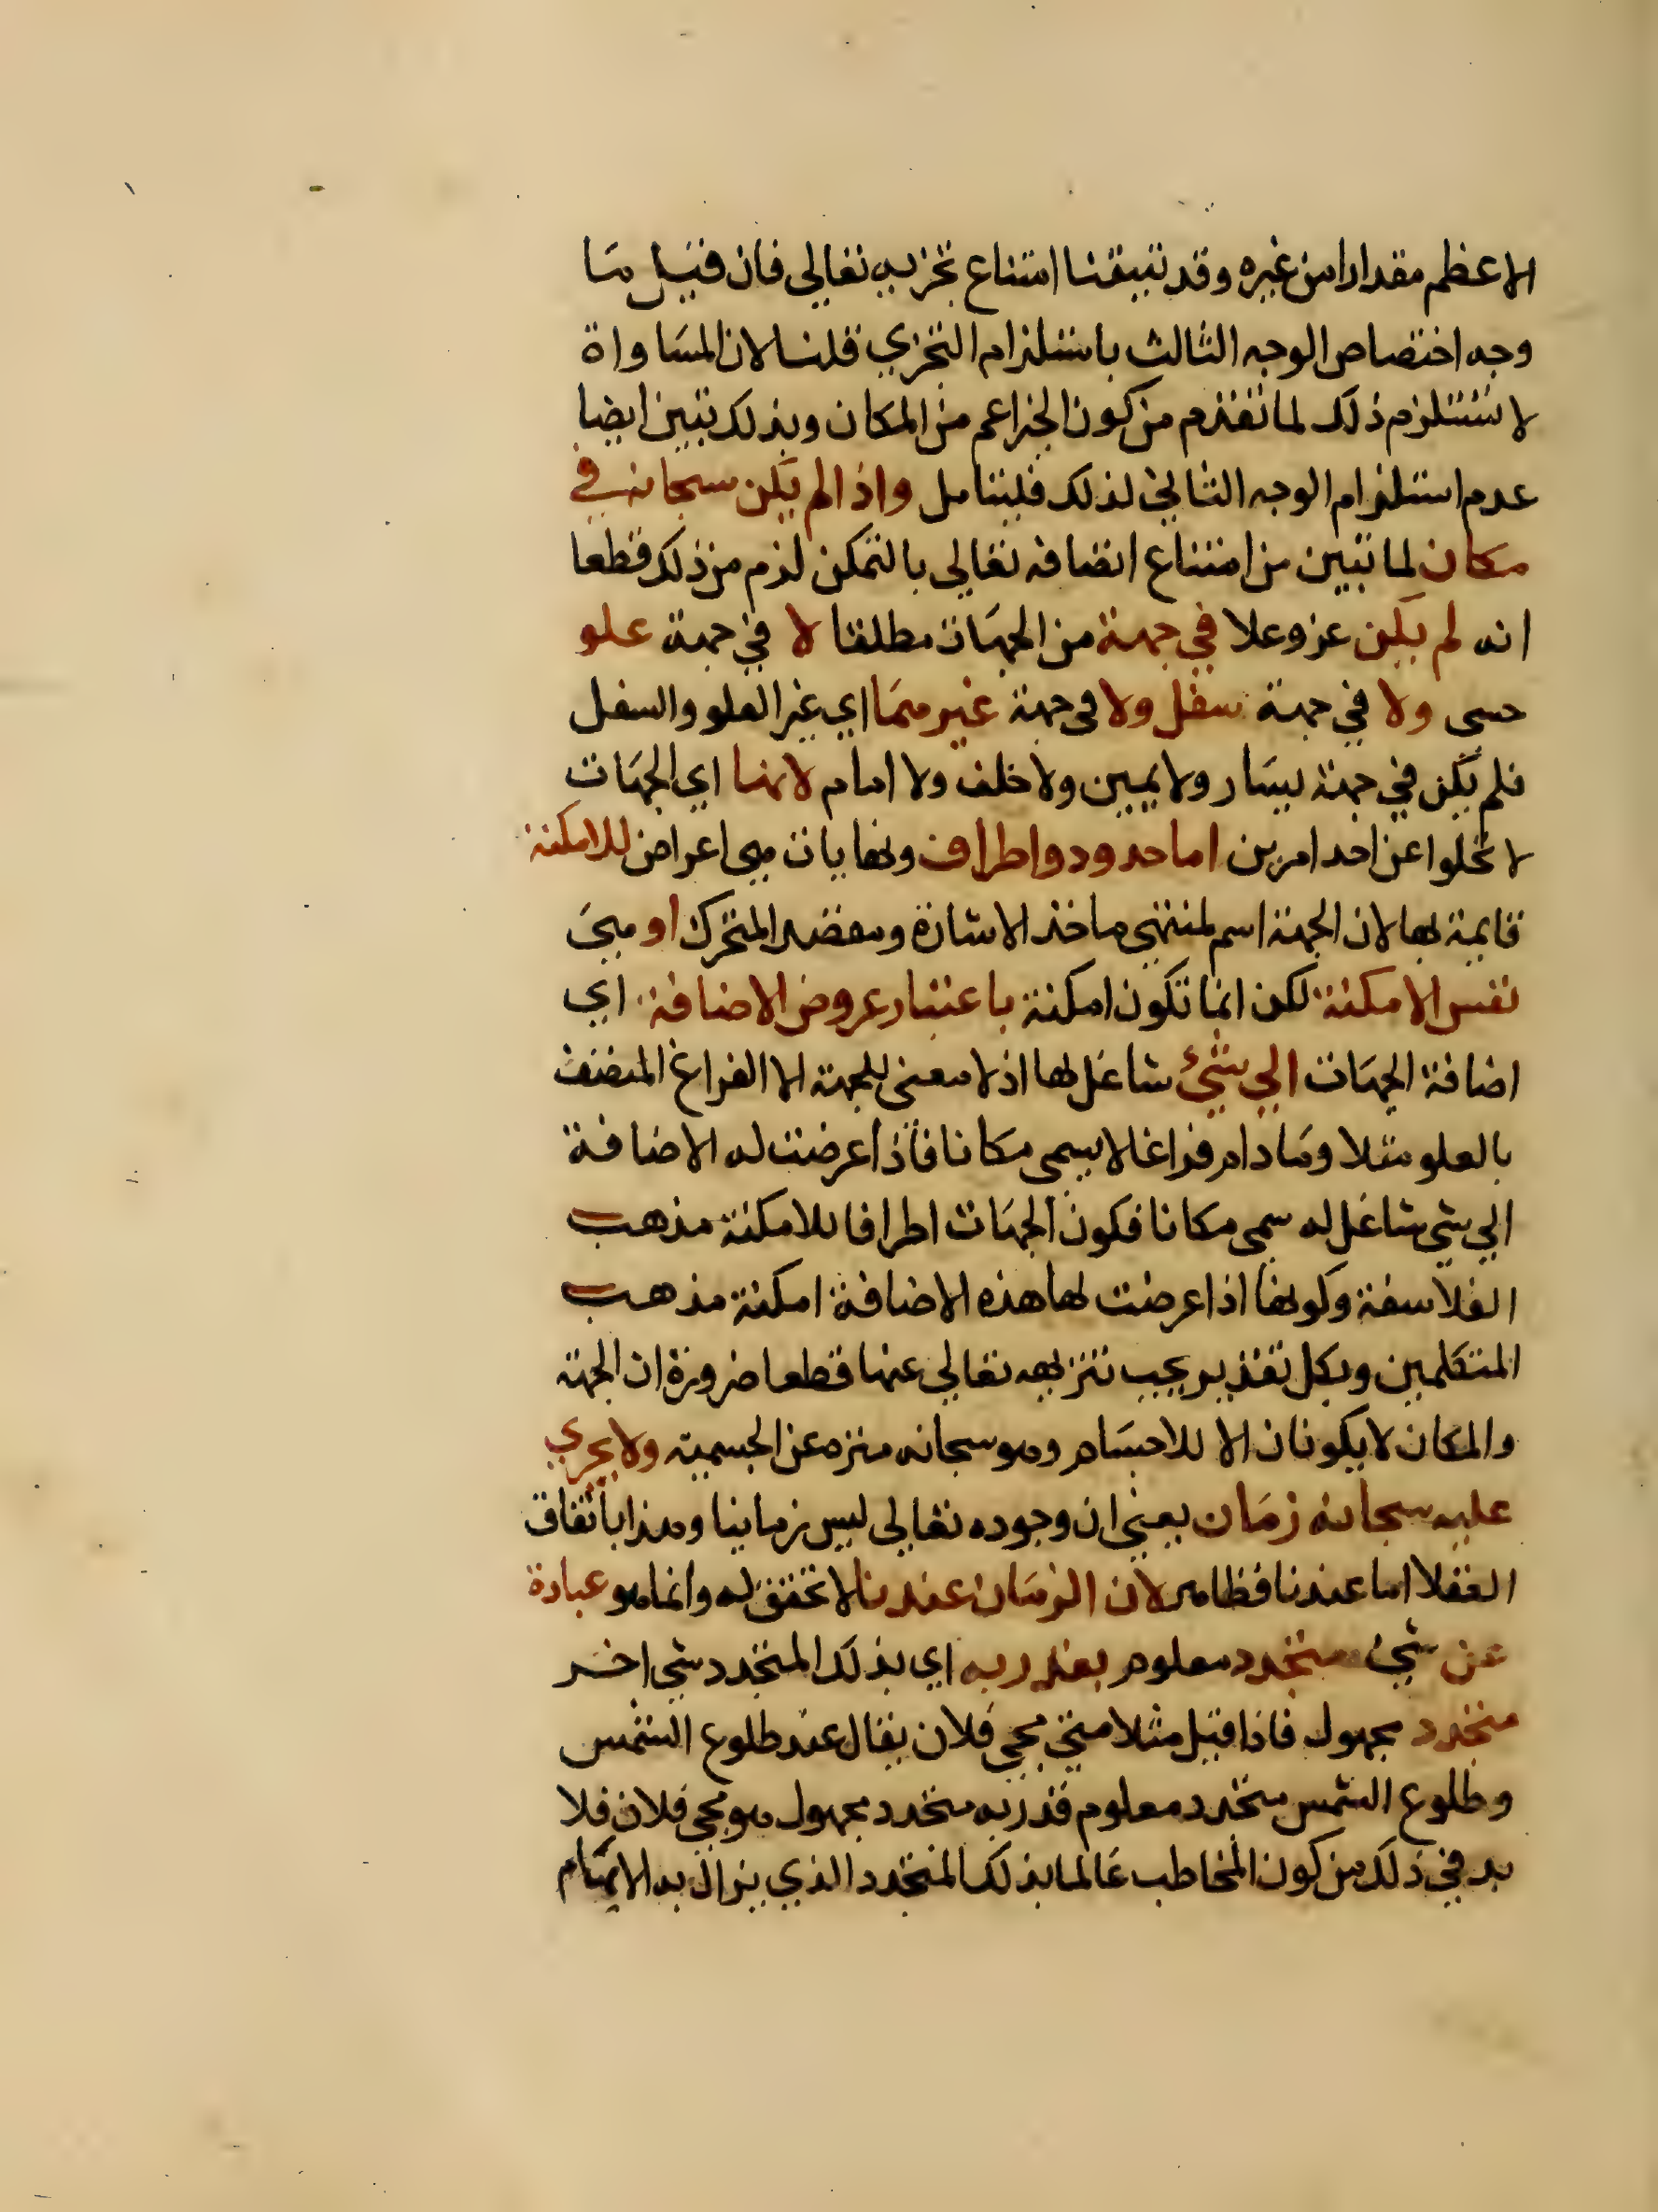 الاعظم مقدارا من غيره وقد تيقنا امتناع تجزيه تعالي فان قيل ما
وجه اختصاص الوجه الثالث باستلزام التجزي قلنا لان المساواة
لا تستلزم ذلك لما تقدم من كون الحيز اعم من المكان وبذلك تبين ايضا
عدم استلزام الوجه الثاني لذلك فليتامل واذا لم يكن سبحانه في
مكان لما تبين من امتناع اتصافه تعالي بالتمكن لزم من ذلك قطعا
انه لم يكن عز وعلا في جهة من الجهات مطلقا لا في جهة علو
حسي ولا في جهة سفل ولا في جهة غيرهما اي غير العلو والسفل
فلم يكن في جهة يسار ولا يمين ولا خلف ولا امام لانها اي الجهات
لا تخلوا عن احد امرين اما حدود واطراف ونهايات هي اعراض للامكنة
قايمة بها لان الجهة اسم لمنتهي ماخذ الاشارة ومقصد المتحرك او هي
نفس الامكنة لكن انما تكون امكنة باعتبار عروض الاضافة اي
اضافة الجهات الي شئ شاغل لها اذ لا معني للجهة الا الفراغ المتصف
بالعلو مثلا وما دام فراغا لا يسمي مكانا فاذا عرضت له الاضافة
الي شي شاغل له سمي مكانا فكون الجهات اطرافا للامكنة مذهب
الفلاسفة وكونها اذا عرضت لها هذه الاضافة امكنة مذهب
المتكلمين وبكل تقدير يجب تنزيهه تعالي عنها قطعا ضرورة ان الجهة
والمكان لا يكونان الا للاجسام وهو سبحانه منزه عن الجسمية ولا يجري
عليه سبحانه زمان بمعني ان وجوده تعالي ليس زمانيا وهذا باتفاق
العقلا اما عندنا فظاهر لان الزمان عندنا لا تحقق له وانما هو عبارة
عن شئ متجدد معلوم يقدر به اي بذلك المتجدد شي اخر
متجدد مجهول فاذا قيل مثلا متي مجي فلان يقال عند طلوع الشمس
وطلوع الشمس متجدد معلوم قدر به متجدد مجهول هو مجي فلان فلا
بد في ذلك من كون المخاطب عالما بذلك المتجدد الذي يزال به الابهام